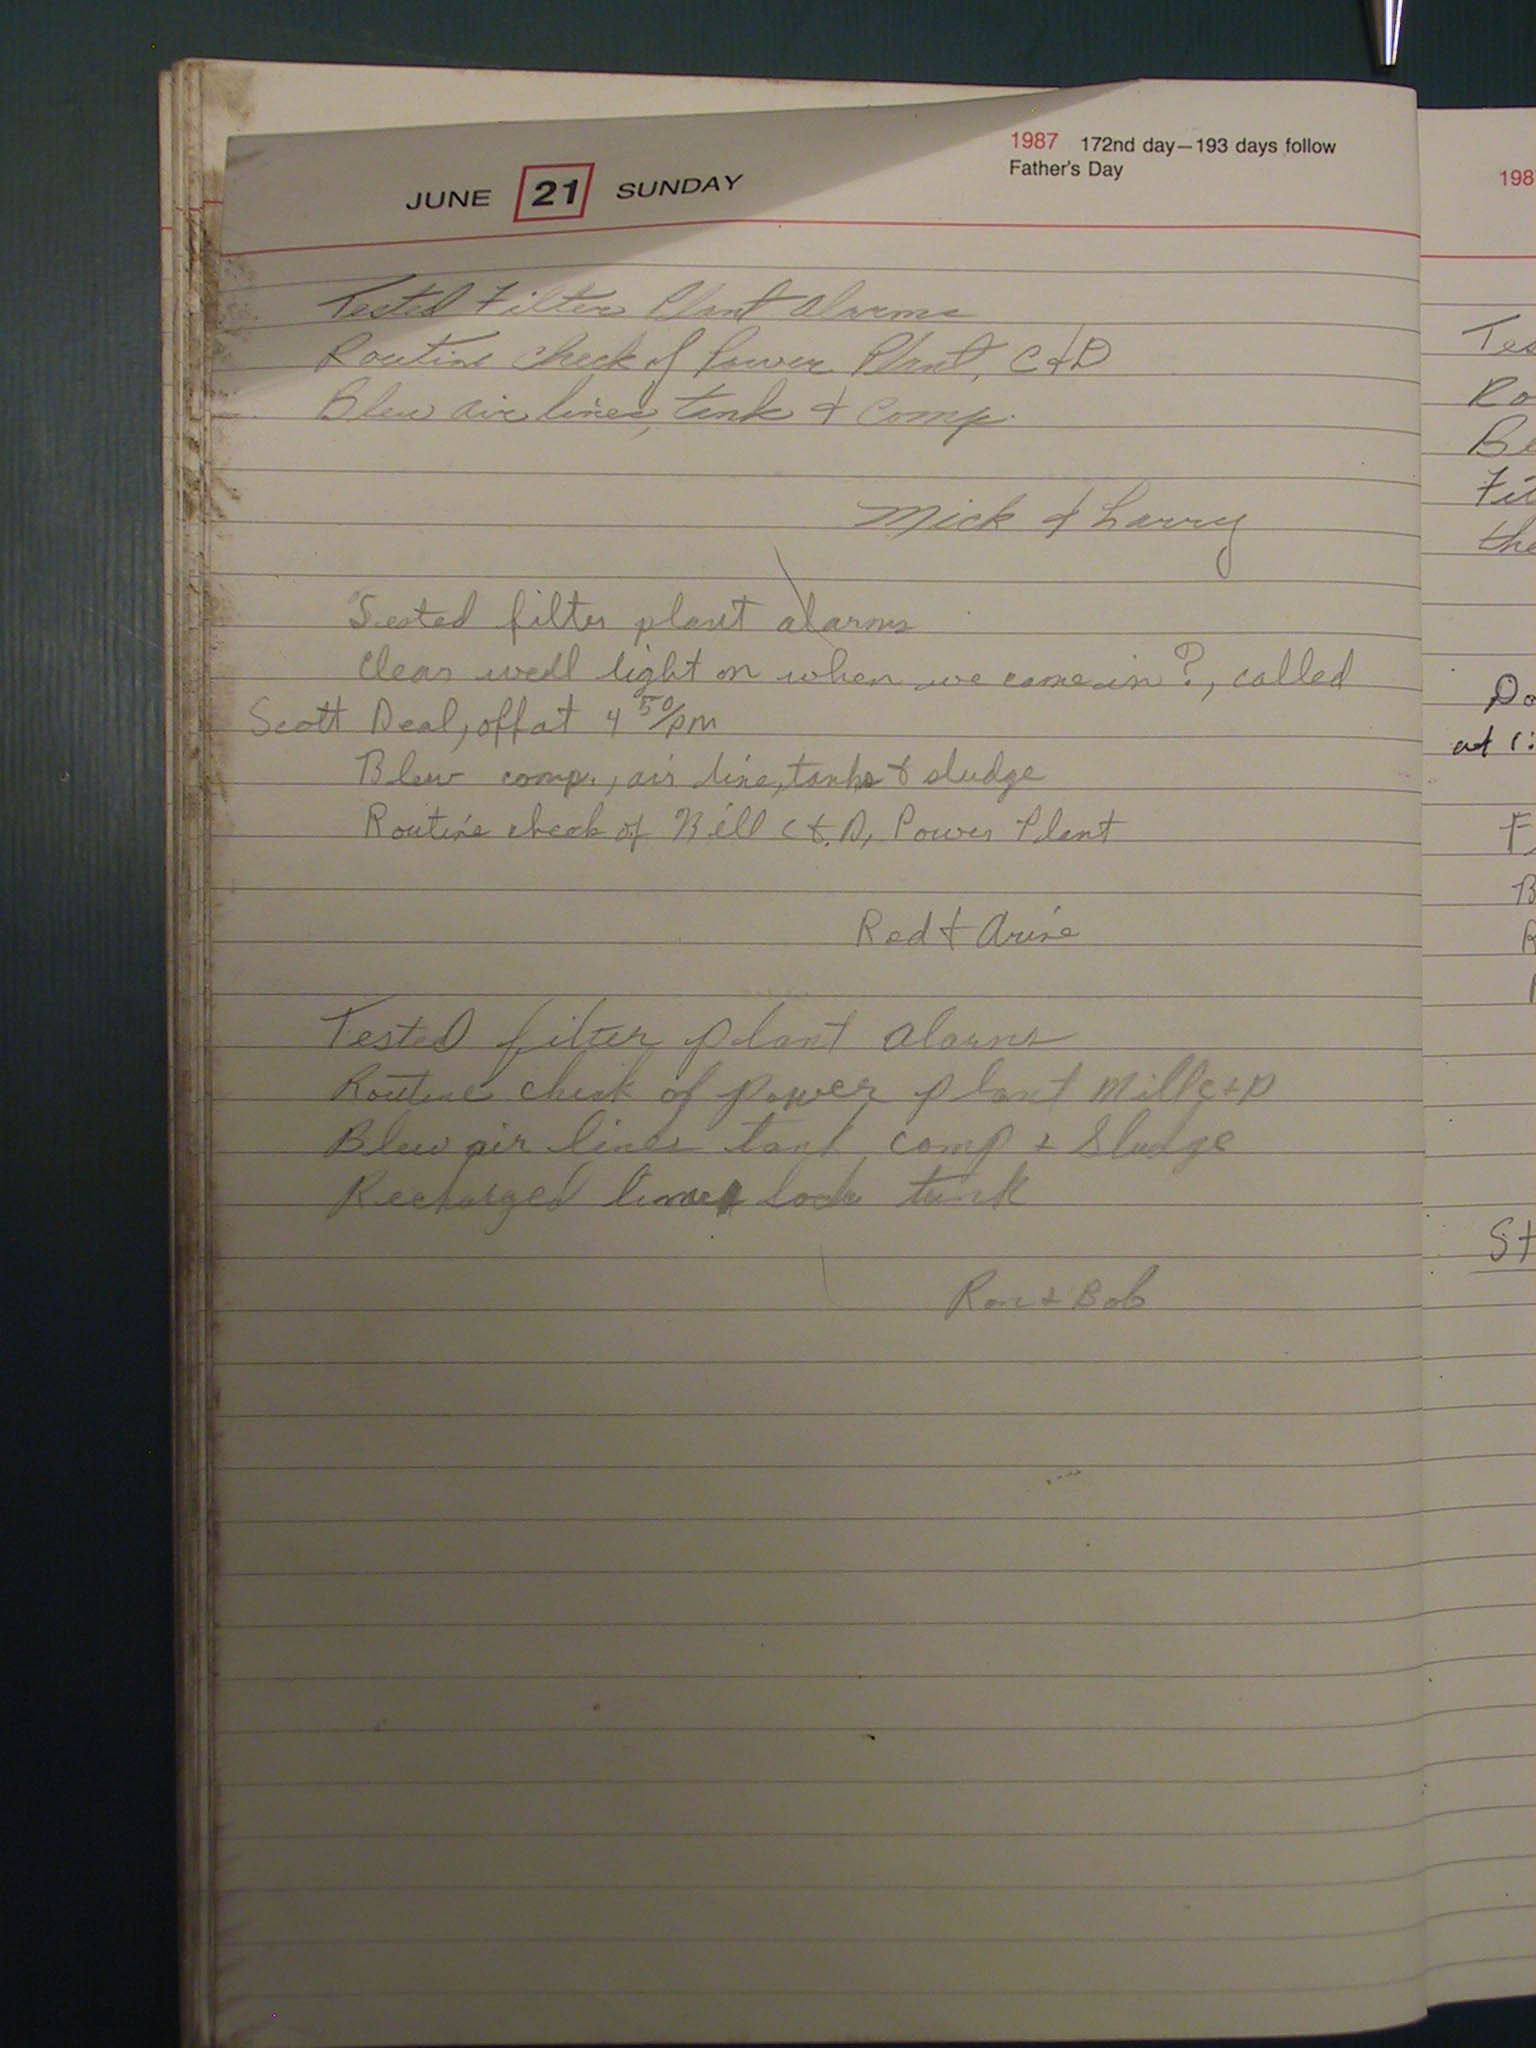 JUNE 21 SUNDAY
1987 172nd day—193 days follow
Father's Day
Tested Filter Plant Alarms
Routine Check of Power Plant, C&D
Blew air lines, tank & Comp.
Mick & Larry
Tested filter plant alarms
Clear well light on when we came in?, called
Scott Deal, off at 4 50/pm
Blew comp., air line, tanks & sludge
Routine check of Mill C&D, Power Plant
Red & Arine
Tested filter plant alarms
Routine check of power plant Mill C+D
Blew air lines tank, comp + Sludge
Recharged lime tank
Ron + Bob
198
Tes
Ro
Be
Fil
the
Do
at 1:
F
B
R
St